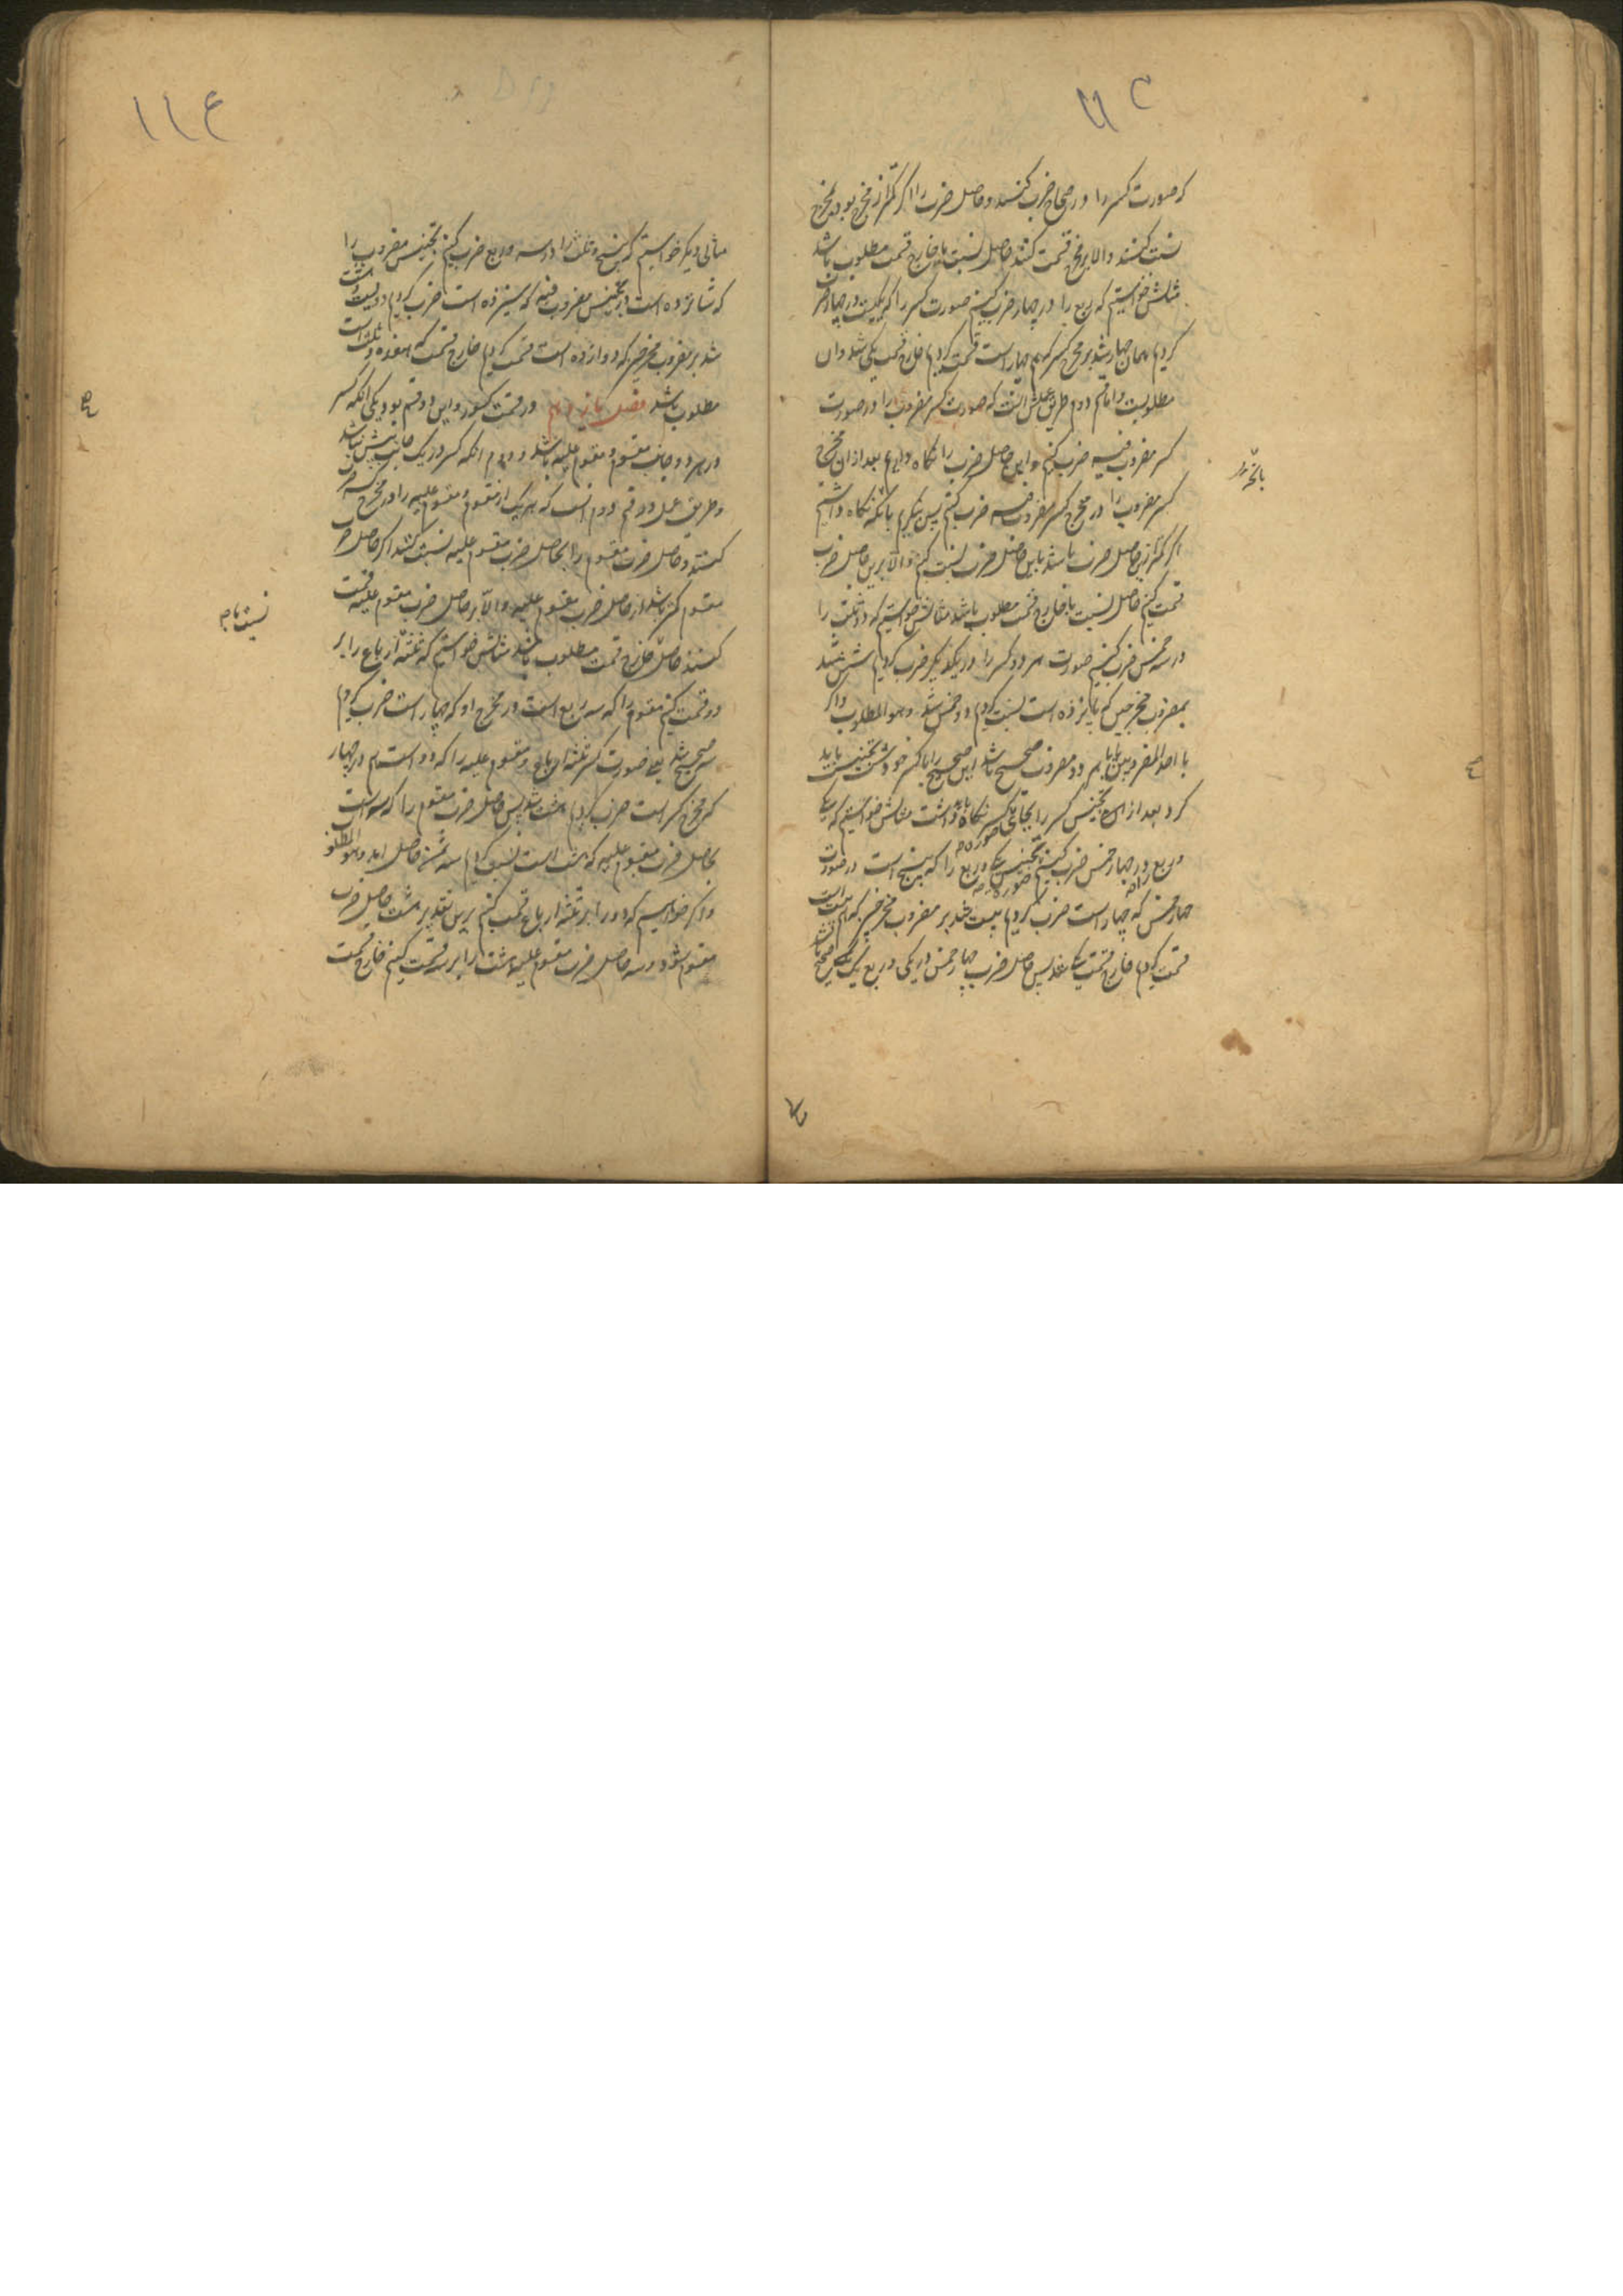 که صورت کسر را در صحاح ضرب کنند و حاصل ضرب را اگر کمتر از مخرج بود بمخرج
نسبت کنند والا بر مخرج قسمت کنند حاصل نسبت یا خارج قسمت مطلوب باشد
مثالش خواستیم که ربع را در چهار ضرب کنیم صورت کسر را که یکیست در چهار ضرب
کردیم همان چهار شد بر مخرج کسر که هم چهار است قسمت کردیم خارج قسمت یکی شد و ان
مطلوبست و اما قسم دوم طریق عملش انست که صورت کسر مضروب را در صورت
کسر مضروب فیه ضرب کنیم و این حاصل ضرب را نگاه داریم بعد از ان مخرج
کسر مضروب را در مخرج کسر مضروب فیه ضرب کنیم پس بنگریم بانکه نگاه داشتیم
اگر کمتر ازین حاصل ضرب باشد باین حاصل ضرب نسبت کنیم و الا برین حاصل ضرب
قسمت کنیم حاصل نسبت یا خارج قسمت مطلوب باشد مثالش خواستیم که دو ثلث را
در سه خمس ضرب کنیم صورت هر دو کسر را در یکدیگر ضرب کردیم شش شد
بمضروب مخرجین که پانزده است نسبت کردیم دو خمس شد و هو المطلوب و اگر
با احد المضروبین یا با هر دو مضروب صحیح باشد این صحیح را با کسر خودش تجنیس باید
کرد بعد از ان تجنیس کسر را بجای کسر نگاه باید داشت مثالش خواستیم که یکی
و ربع را در چهار خمس ضرب کنیم تجنیس یکی و ربع را که پنج است در صورت
چهار خمس که چهار است ضرب کردیم بیست شد بر مضروب مخرجین که هم بیست است
قسمت کردیم خارج قسمت یکی شد پس حاصل ضرب چهار خمس در یکی و ربع یک صحیح باشد
مثالی دیگر خواستیم که پنج و ثلث را در سه و ربع ضرب کنیم تجنیس مضروب را
که شانزده است در تجنیس مضروب فیه که سیزده است ضرب کردیم دویست و هشت
شد بر مضروب مخرجین که دوازده است قسمت کردیم خارج قسمت که هفده و ثلث است
مطلوب باشد فصل یازدهم در قسمت کسور و این دو قسم بود یکی انکه کسر
در هر دو جانب مقسوم و مقسوم علیه باشد و دوم انکه کسر در یک جانب بیش نباشد
و طریق عمل در قسم دوم انست که هر یک از مقسوم و مقسوم علیه را در مخرج کسر ضرب
کنند و حاصل ضرب مقسوم را بحاصل ضرب مقسوم علیه نسبت کنند اگر حاصل ضرب
مقسوم کمتر باشد از حاصل ضرب مقسوم علیه والا بر حاصل ضرب مقسوم علیه قسمت
کنند حاصل خارج قسمت مطلوب باشد مثالش خواستیم که ثلثه ارباع را بر
دو قسمت کنیم مقسوم را که سه ربع است در مخرج او که چهار است ضرب کردیم
سه صحیح شد یعنی صورت کسر ثلثه ارباع و مقسوم علیه را که دو است هم در چهار
که مخرج کسر است ضرب کردیم هشت شد پس حاصل ضرب مقسوم را که سه است
بحاصل ضرب مقسوم علیه که هشت است نسبت کردیم سه ثمن حاصل امد و هو المطلوب
و اگر خواستیم که دو را بر ثلثه ارباع قسمت کنیم برین تقدیر هشت حاصل ضرب
مقسوم شود و سه حاصل ضرب مقسوم علیه هشت را بر سه قسمت کنیم خارج قسمت